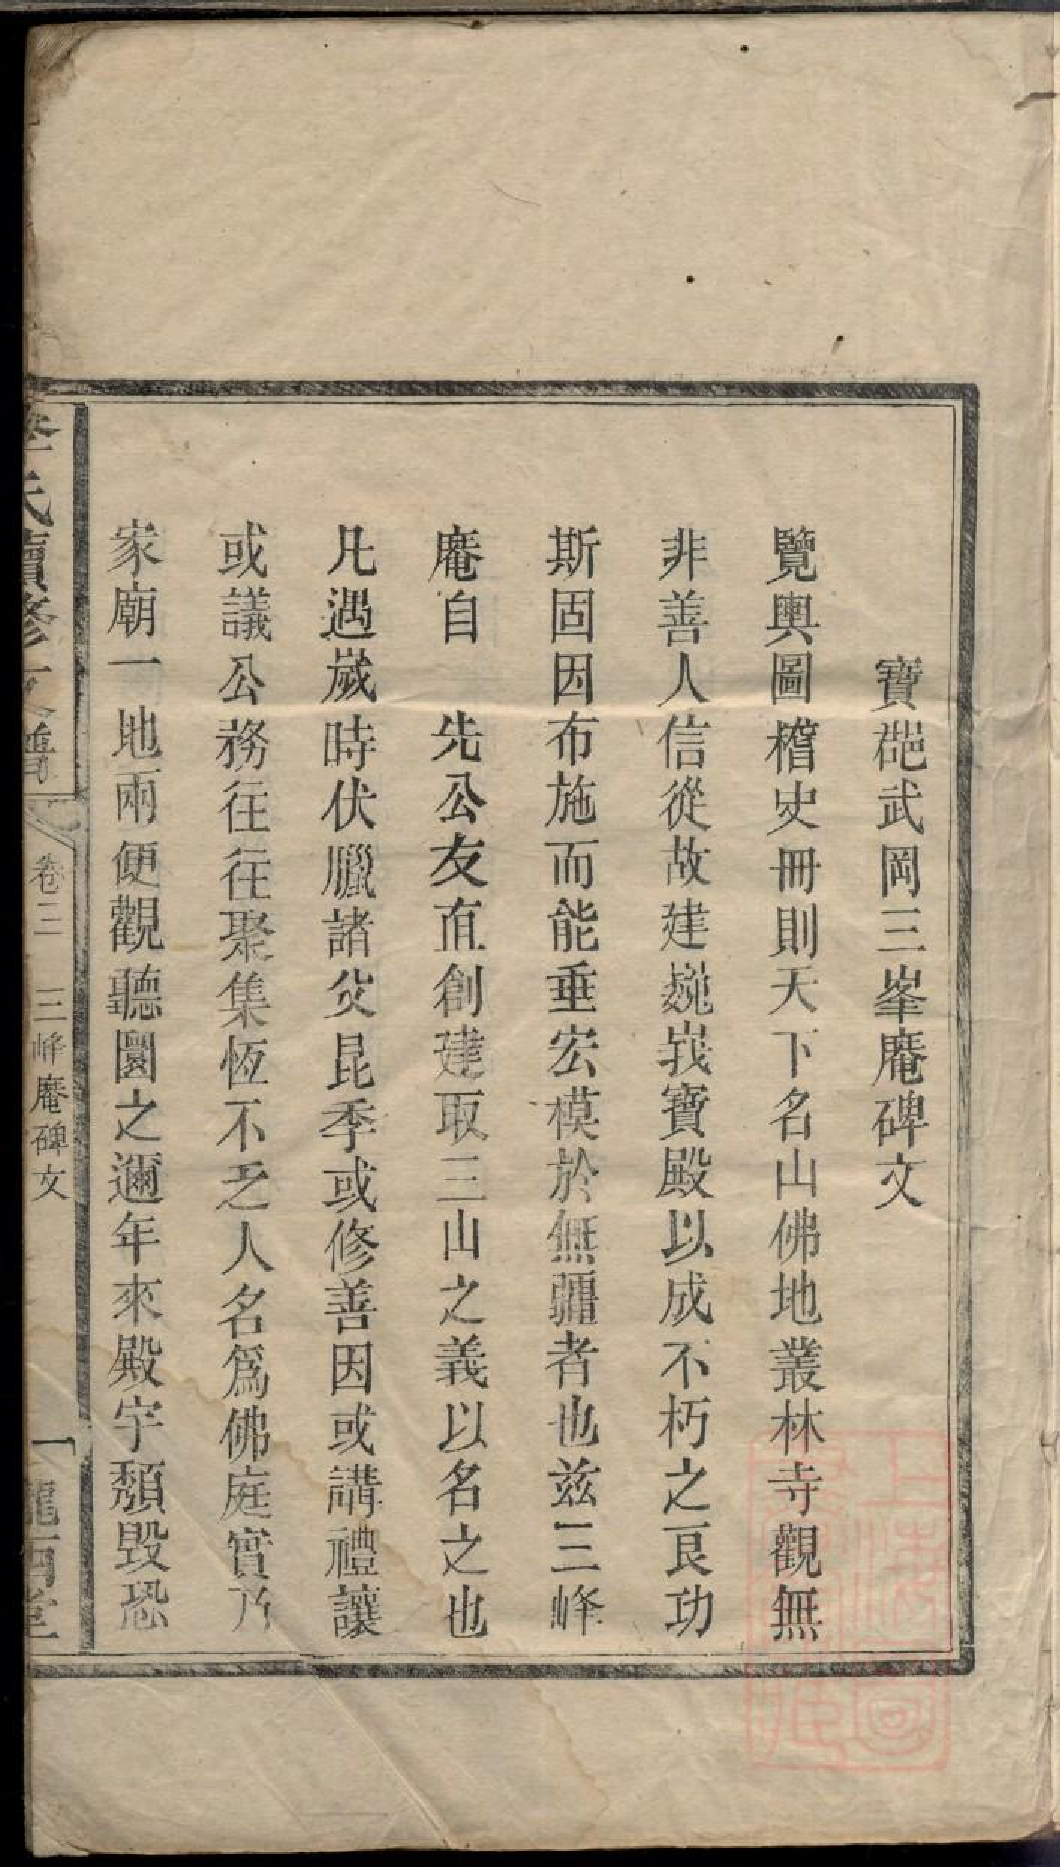 寶郡武岡三峯庵碑文
覽輿圖稽史冊則天下名山佛地叢林寺觀無
非善人信從故建巍峩寶殿以成不朽之良功
斯固因布施而能垂宏模於無疆者也兹三峰
庵自 先公友直創建取三山之義以名之也
凡遇歲時伏臘諸父昆季或修善因或講禮讓
或議公務往往聚集恆不乏人名為佛庭實乃
家廟一地兩便觀聽圜之邇年來殿宇頹毀恐
李氏續修支譜
卷三
三峰庵碑文
一
隴西堂